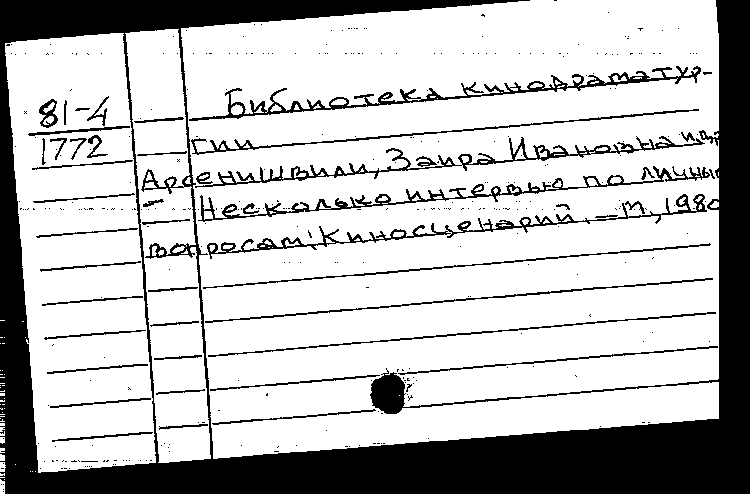 81-4
1772
Библиотека кинодраматур-
гии
Арсенишвили, Заира Ивановна и др.
— Несколько интервью по личным
вопросам: Киносценарий. — М., 1980